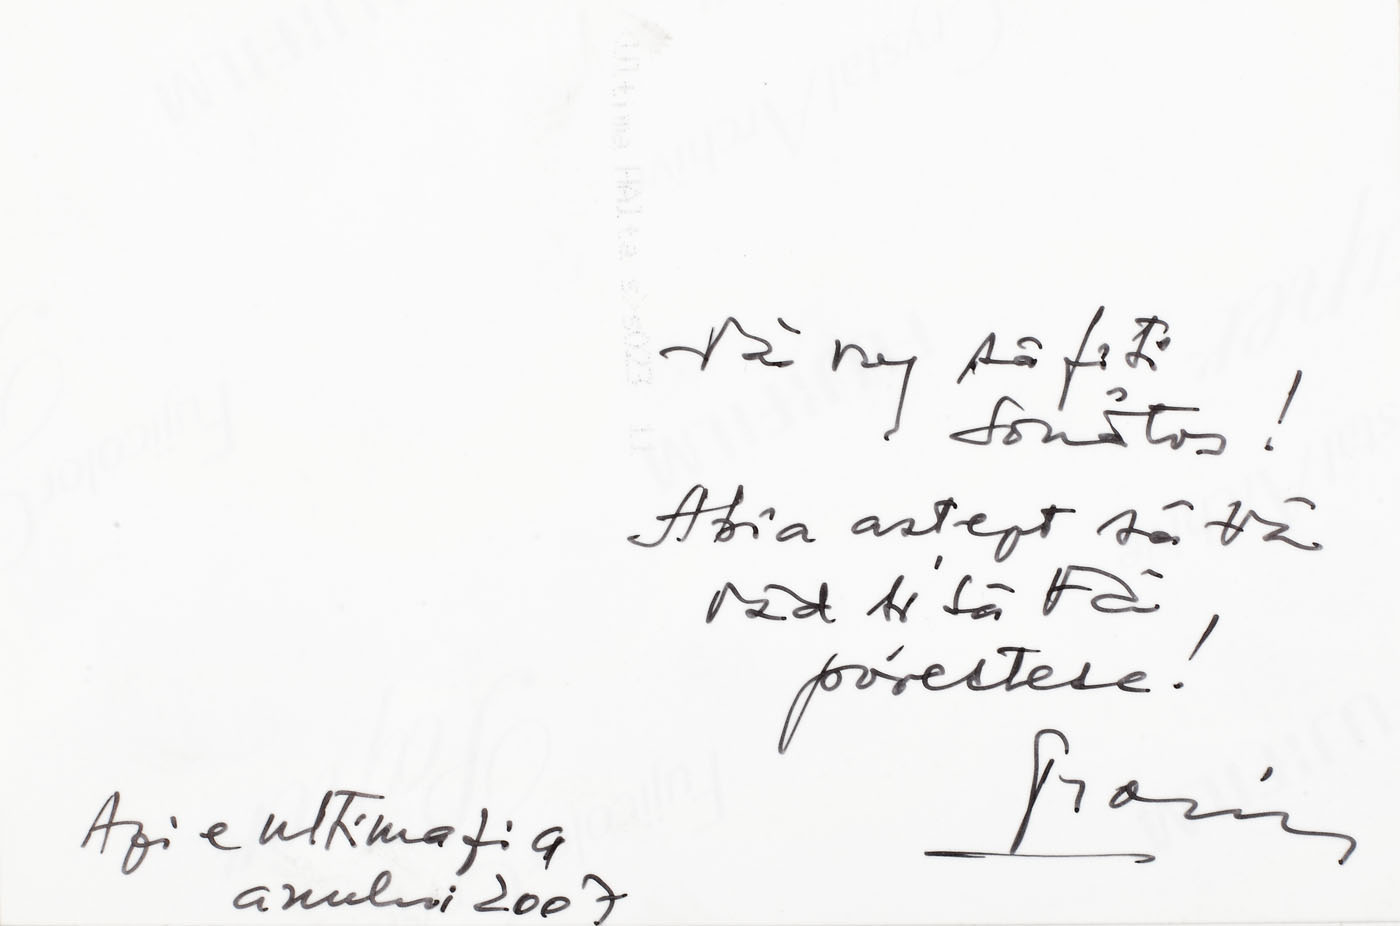 Vă rog să fiți
sănătos!
Abia aștept să vă
văd și să vă
povestesc!
Azi e ultima zi a
anului 2007